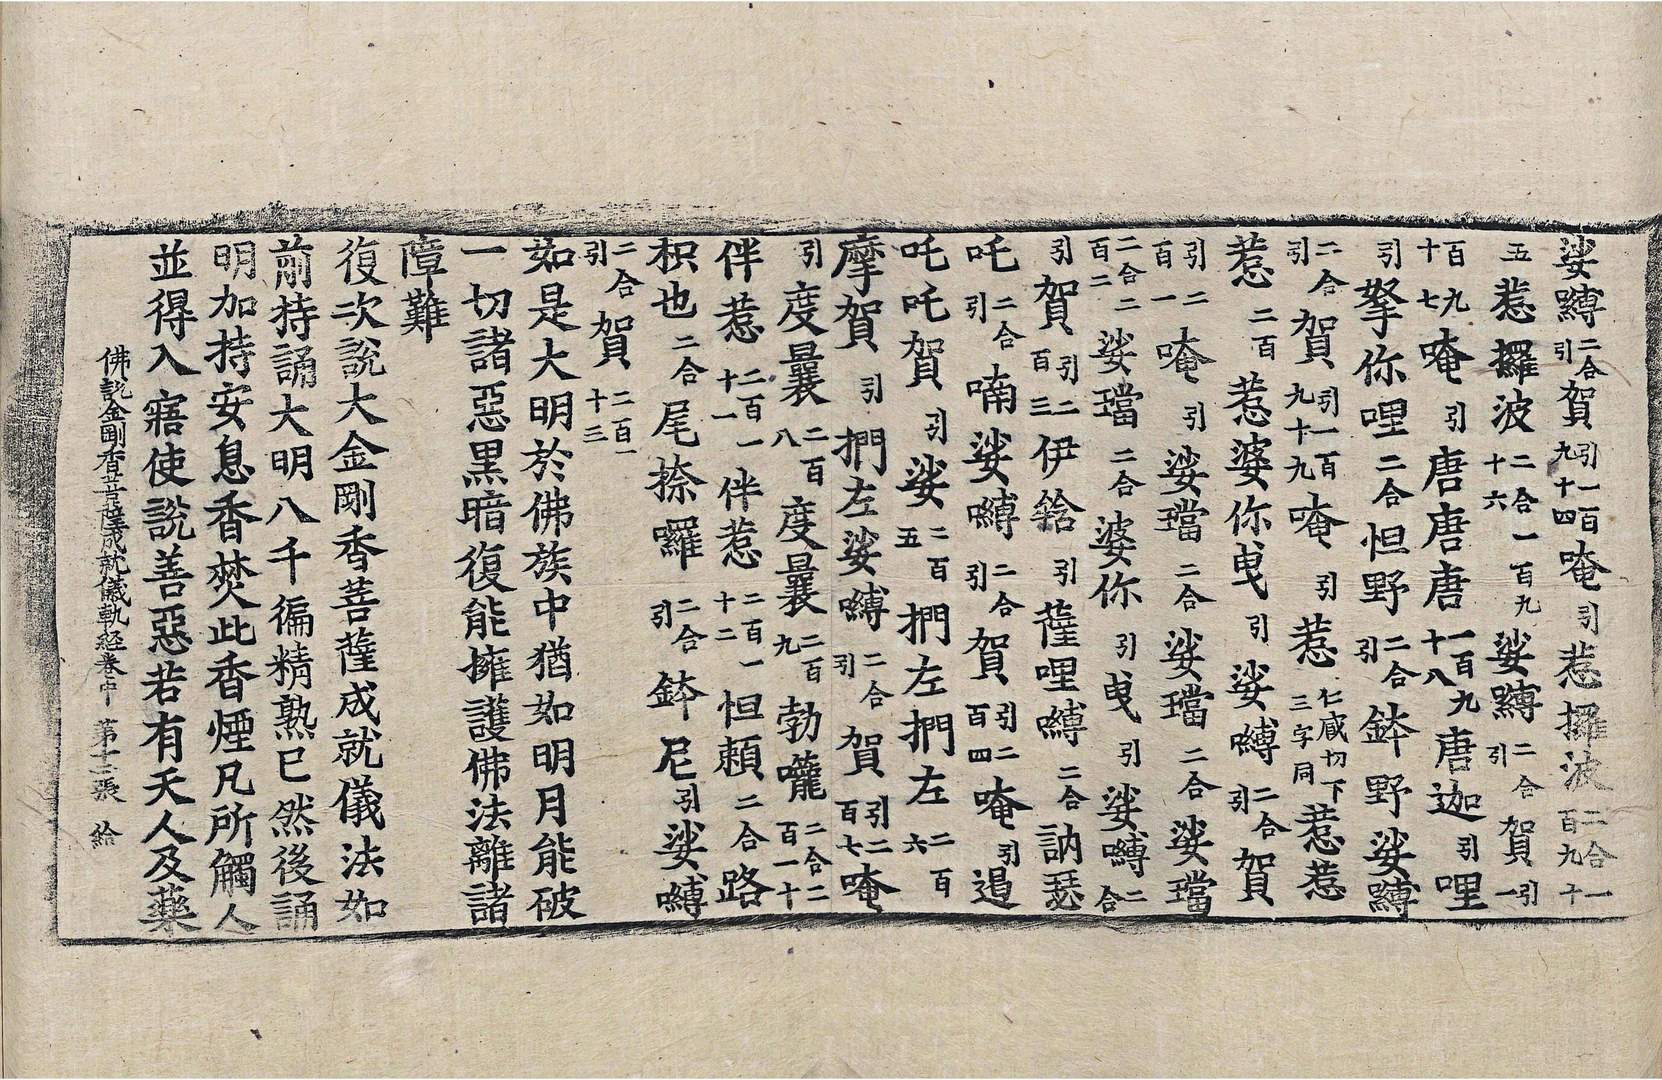 娑嚩二合引賀引一百九十四唵引惹攞波二合一百九十
五惹攞波二合一百九十六娑嚩二合引賀引一
百九十七唵引唐唐唐一百九十八唐迦引哩
引拏你哩二合怛野二合引鉢野娑嚩
二合引賀引一百九十九唵引惹仁咸切下三字同惹惹
惹二百惹婆你曳引娑嚩二合引賀
引二百一唵引娑璫二合娑璫二合娑璫
二合二百二娑璫二合婆你引曳引娑嚩二合
引賀引二百三伊鎗引薩哩嚩二合訥瑟
吒二合引喃娑嚩二合引賀引二百四唵引遏
吒吒賀引娑二百五捫左捫左二百六
摩賀引捫左娑嚩二合引賀引二百七唵
引度曩二百八度曩二百九勃嚨二合二百一十
伴惹二百一十一伴惹二百一十二怛頼二合路
枳也二合尾捺囉二合引鉢尼引娑嚩
二合引賀二百一十三
如是大明於佛族中猶如明月能破
一切諸惡黑暗復能擁護佛法離諸
障難
復次說大金剛香菩薩成就儀法如
前持誦大明八千徧精熟已然後誦
明加持安息香焚此香煙凡所觸人
並得入寤使說善惡若有天人及藥
佛說金剛香菩薩成就儀軌经卷中 第十一張 給